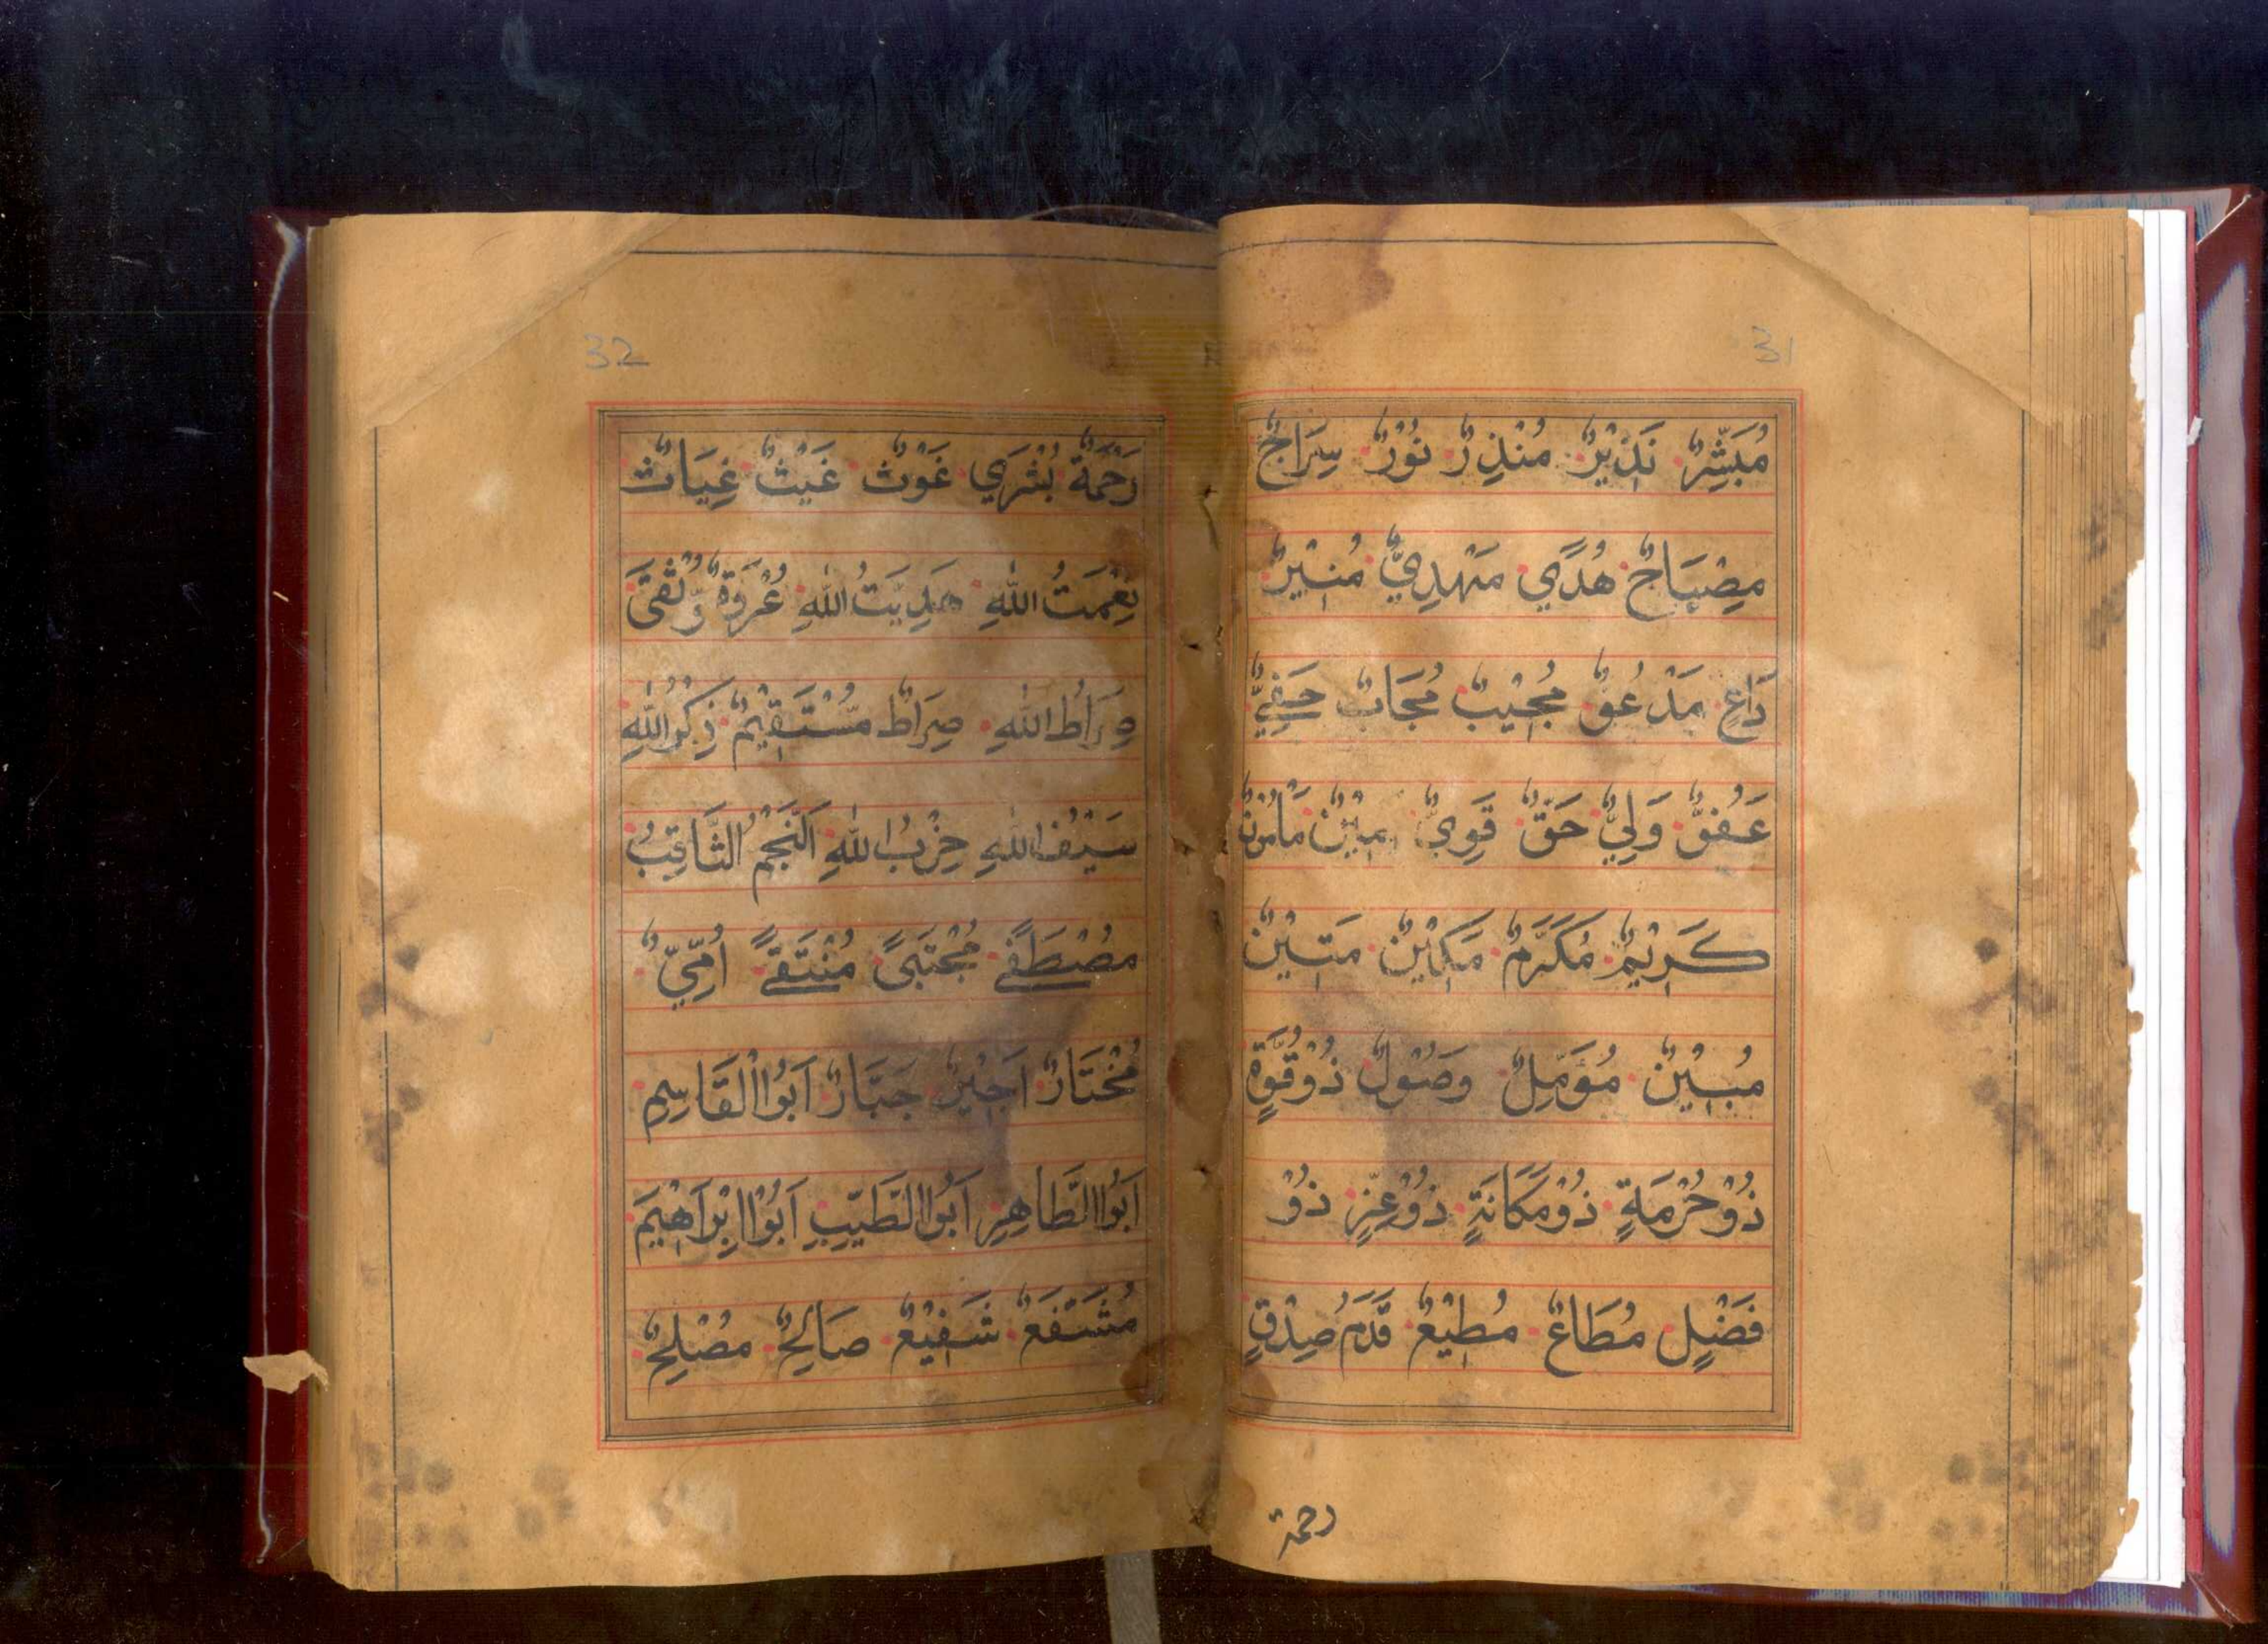 31
مُبَشِّرٌ نَذِيْرٌ مُنْذِرٌ نُوْرٌ سِرَاجٌ
مِصْبَاحٌ هُدًي مَهْدِيٌّ مُنِيْرٌ
دَاعٍ مَدْعُوٌّ مُجِيْبٌ مُجَابٌ حَفِيٌّ
عَفُوٌّ وَلِيٌّ حَقٌّ قَوِيٌّ اَمِيْنٌ مَامُوْنٌ
كَرِيْمٌ مُكَرَّمٌ مَكِيْنٌ مَتِيْنٌ
مُبِيْنٌ مُؤَمِّلٌ وَصُوْلٌ ذُوْقُوَّةٍ
ذُوْحُرْمَةٍ ذُوْمَكَانَةٍ ذُوْعِزٍّ ذُوْ
فَضْلٍ مُطَاعٌ مُطِيْعٌ قَدَمُ صِدْقٍ
رحمة
32
رَحْمَةٌ بُشْرَي غَوْثٌ غَيْثٌ غِيَاثٌ
نِعْمَتُ اللهِ هَدِيَّتُ اللهِ عُرْوَةٌ وُّثْقَى
صِرَاطُ اللهِ صِرَاطٌ مُّسْتَقِيْمٌ ذِكْرُ اللهِ
سَيْفُ اللهِ حِزْبُ اللهِ اَلنَّجْمُ الثَّاقِبُ
مُصْطَفًے مُجْتَبًى مُنْتَقًے اُمِّيٌّ
مُخْتَارٌ اَجِيْرٌ جَبَّارٌ اَبُوا الْقَاسِمِ
اَبُوا الطَّاهِرِ اَبُوا الطَّيِّبِ اَبُوْا اِبْرَاهِيْمَ
مُشَفَّعٌ شَفِيْعٌ صَالِحٌ مُصْلِحٌ